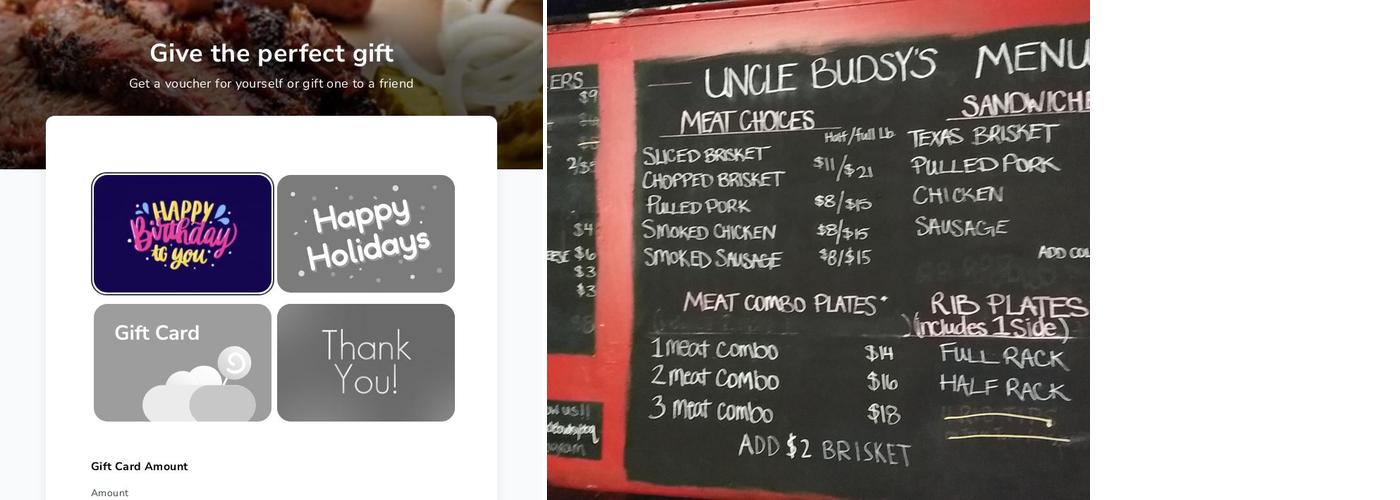 Give the perfect gift
Get a voucher for yourself or gift one to a friend
HAPPY
Birthday
to you
Happy
Holidays
Gift Card
Thank
You!
Gift Card Amount
Amount
ERS
$9
2/$5
$4
$6
$3
$3
UNCLE BUDSY'S MENU
MEAT CHOICES
Half/full Lb.
SLICED BRISKET
$11/$21
CHOPPED BRISKET
PULLED PORK $8/$15
SMOKED CHICKEN $8/$15
SMOKED SAUSAGE $8/$15
SANDWICHE
TEXAS BRISKET
PULLED PORK
CHICKEN
SAUSAGE
ADD COL
MEAT COMBO PLATES*
1 meat combo $14
2 meat combo $16
3 meat combo $18
ADD $2 BRISKET
RIB PLATES
(includes 1 Side)
FULL RACK
HALF RACK